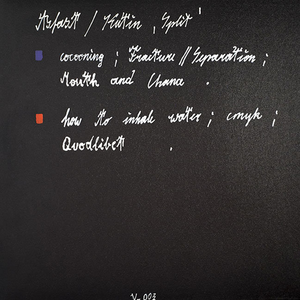 Asfast / Hütin „Split"
cocooning ; Fracture // Separation ;
Mouth and Chana .
how to inhale water ; cmyk ;
Quodlibet .
V-003